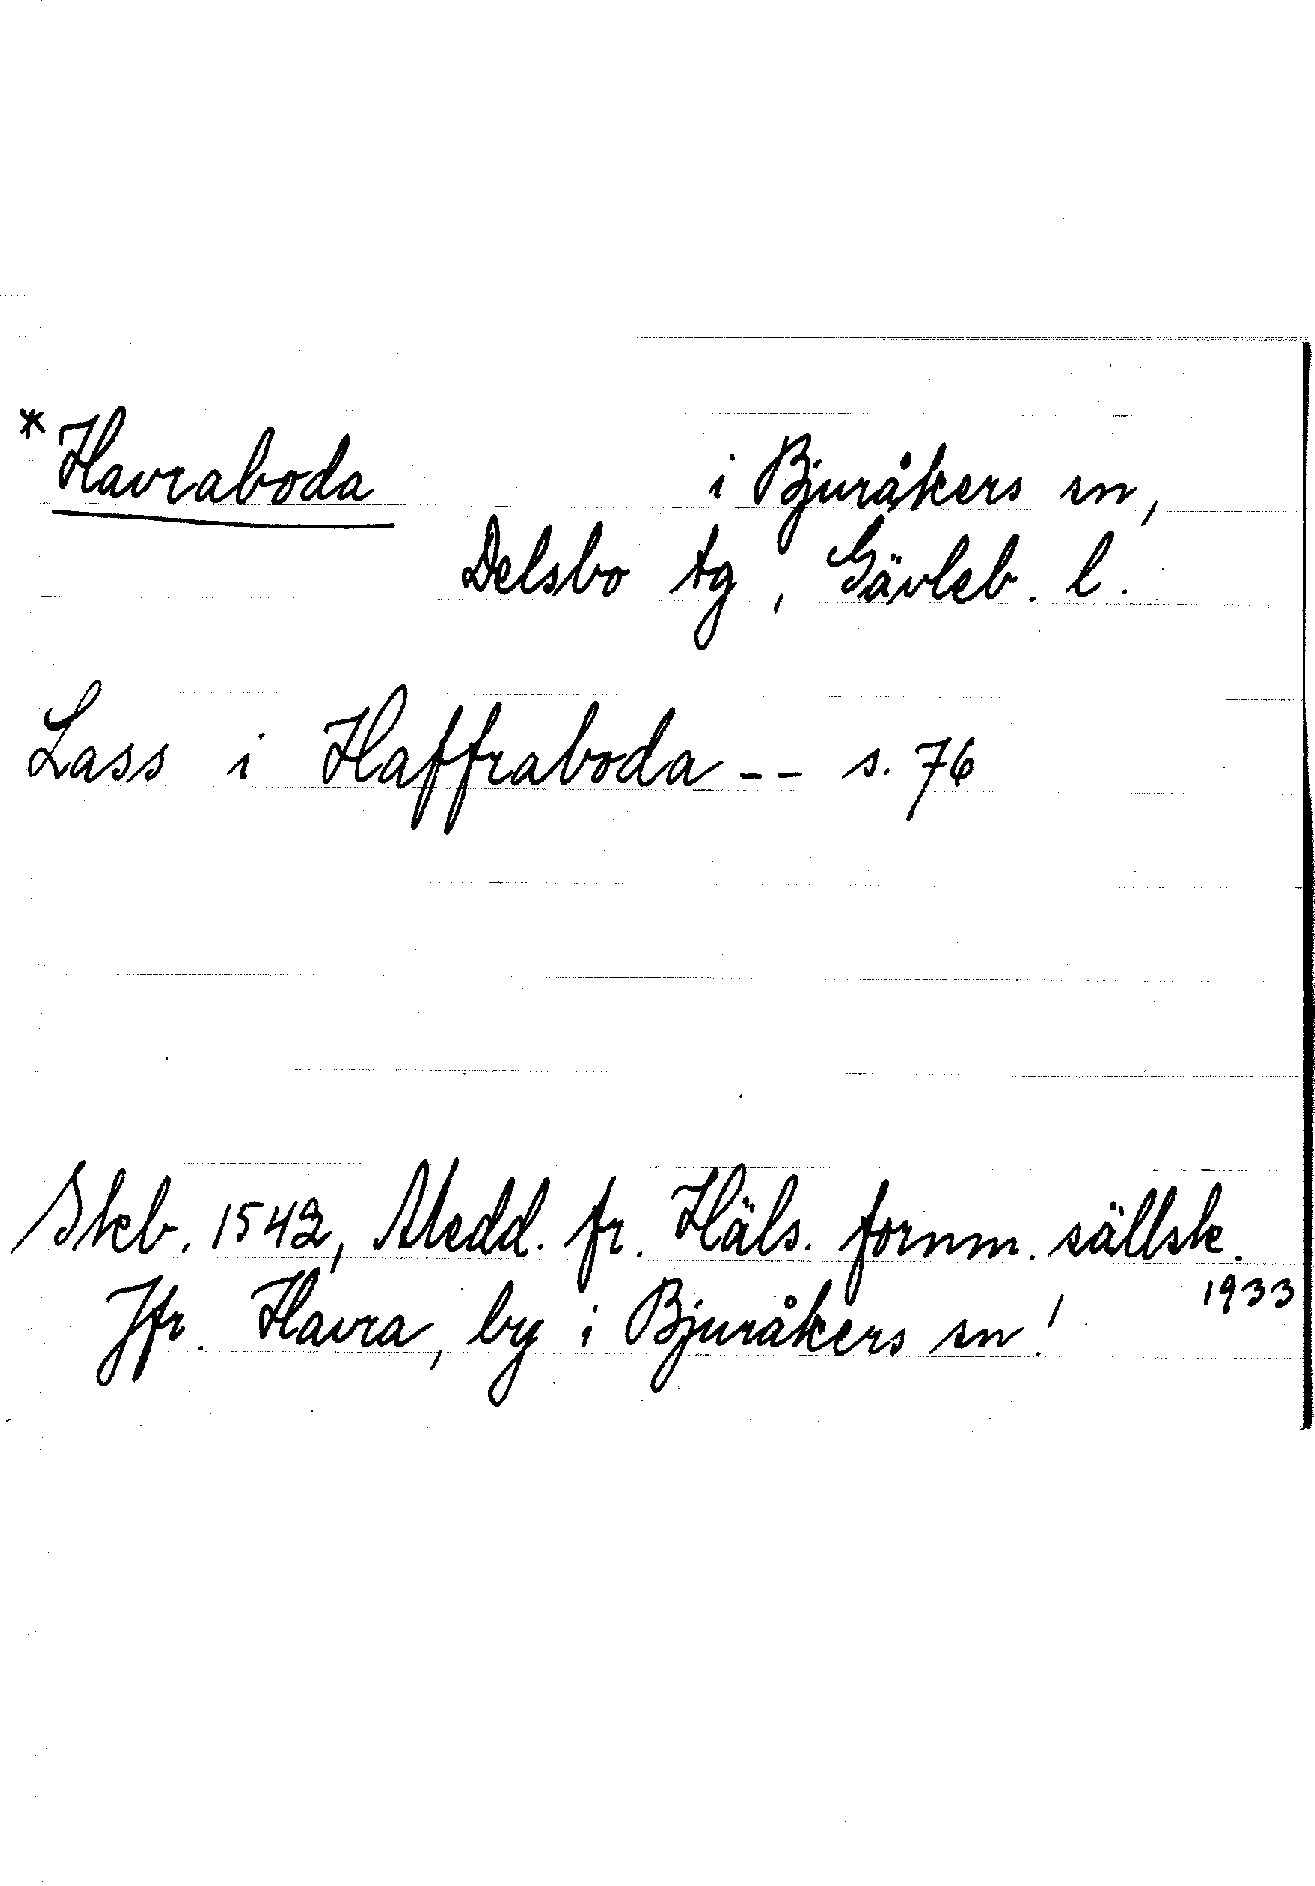 *Havraboda i Bjuråkers sn,
Delsbo tg, Gävleb. l.
Lass i Haffraboda -- s. 76
Skb. 1542, Medd. fr. Häls. fornm. sällsk.
1933
Jfr. Havra, by i Bjuråkers sn!